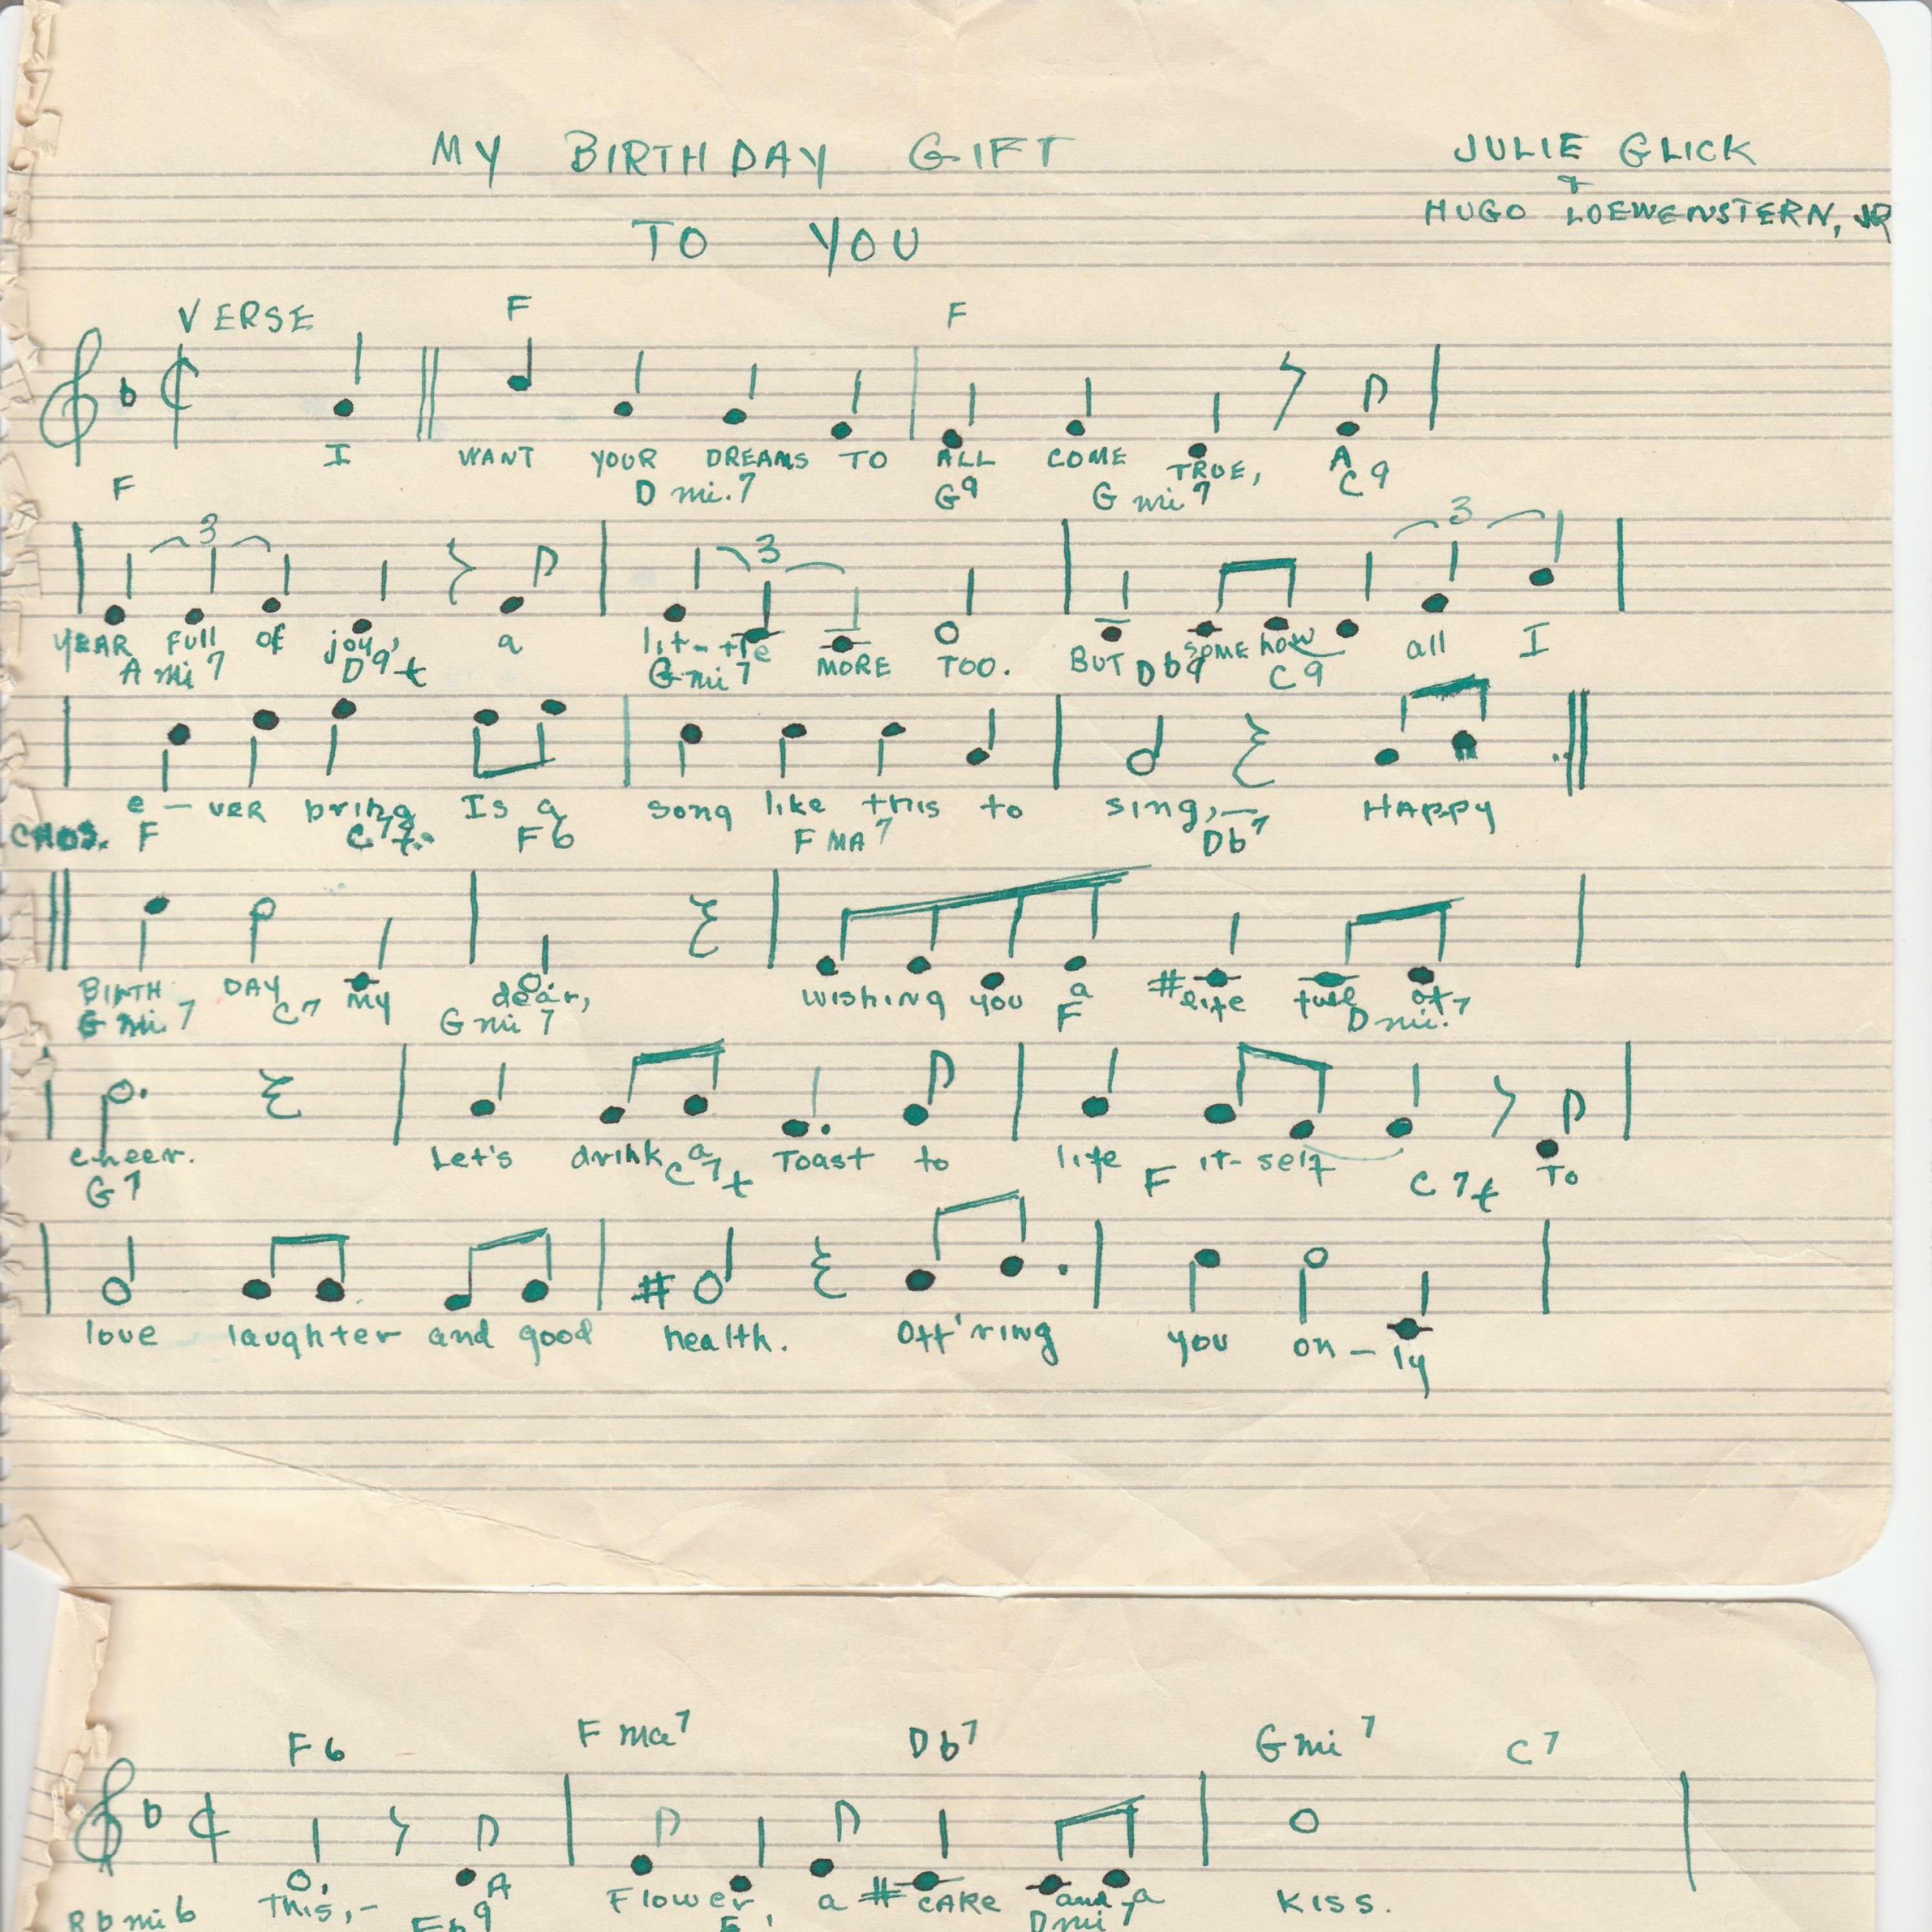 MY BIRTHDAY GIFT
TO YOU
JULIE GLICK
&
HUGO LOEWENSTERN, JR
VERSE F F
I WANT YOUR DREAMS TO ALL COME TRUE, A
F D mi.7 G9 G mi7 C9
3 3 3
YEAR Full of joy, a lit-tle MORE TOO. BUT SOME how all I
A mi7 D9+ G mi7 Db9 C9
e - VER bring Is a song like this to sing, - HAPPY
CHOS. F F6 F MA7 Db7
BIRTH DAY my dear, wishing you a life full of
G mi.7 C7 G mi7 F D mi.7
cheer. Let's drink a Toast to life it-self To
G7 C7+ F C7+
love laughter and good health. Off'ring you on-ly
F6 F ma7 Db7 G mi7 C7
This, - A Flower, a CARE and a KISS.
Bb mi6 Eb9 D mi7